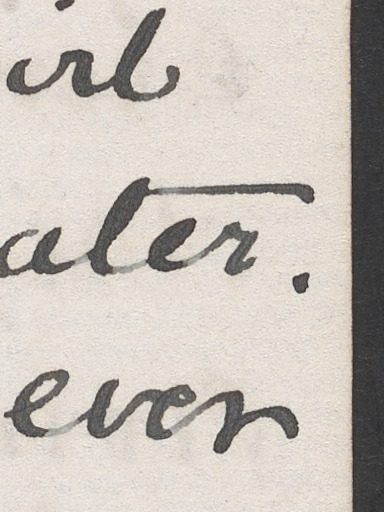 irl
ater.
ever